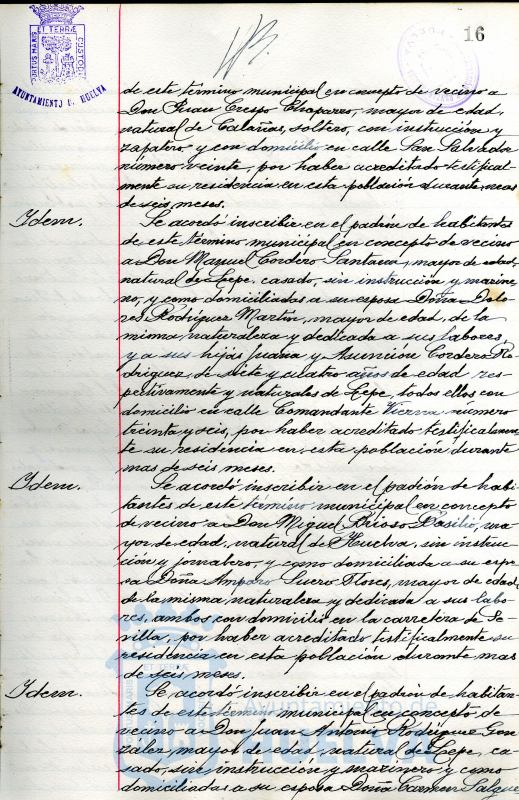 PORTUS MARIS
ET TERRÆ
CUSTODIA
AYUNTAMIENTO D. HUELVA
16
de este término municipal en concepto de vecino a
Don Juan Crespo Chaparro, mayor de edad,
natural de Calañas, soltero, con instrucción y
zapatero, y con domicilio en calle San Salvador
número veinte, por haber acreditado testifical-
mente su residencia en esta población durante mas
de seis meses.
Idem. Se acordó inscribir en el padrón de habitantes
de este término municipal en concepto de vecino
a Don Manuel Cordero Santana, mayor de edad,
natural de Lepe, casado, sin instrucción y marine-
ro, y como domiciliadas a su esposa Doña Dolo-
res Rodríguez Martín, mayor de edad, de la
misma naturaleza y dedicada a sus labores,
y a sus hijas Juana y Asunción Cordero Ro-
dríguez, de siete y cuatro años de edad res-
pectivamente y naturales de Lepe, todos ellos con
domicilio en calle Comandante Vierna número
treinta y seis, por haber acreditado testificalmen-
te su residencia en esta población durante
mas de seis meses.
Idem. Se acordó inscribir en el padrón de habi-
tantes de este término municipal en concepto
de vecino a Don Miguel Brioso Basilio, ma-
yor de edad, natural de Huelva, sin instruc-
ción y jornalero, y como domiciliada a su espo-
sa Doña Amparo Suero Flores, mayor de edad,
de la misma naturaleza y dedicada a sus labo-
res, ambos con domicilio en la carretera de Se-
villa, por haber acreditado testificalmente su
residencia en esta población durante mas
de seis meses.
Idem. Se acordó inscribir en el padrón de habitan-
tes de este término municipal en concepto de
vecino a Don Juan Antonio Rodríguez Gon-
zález, mayor de edad, natural de Lepe, ca-
sado, sin instrucción y marinero, y como
domiciliadas a su esposa Doña Carmen Salgue
ET TERRÆ
Ayuntamiento de
HUELVA